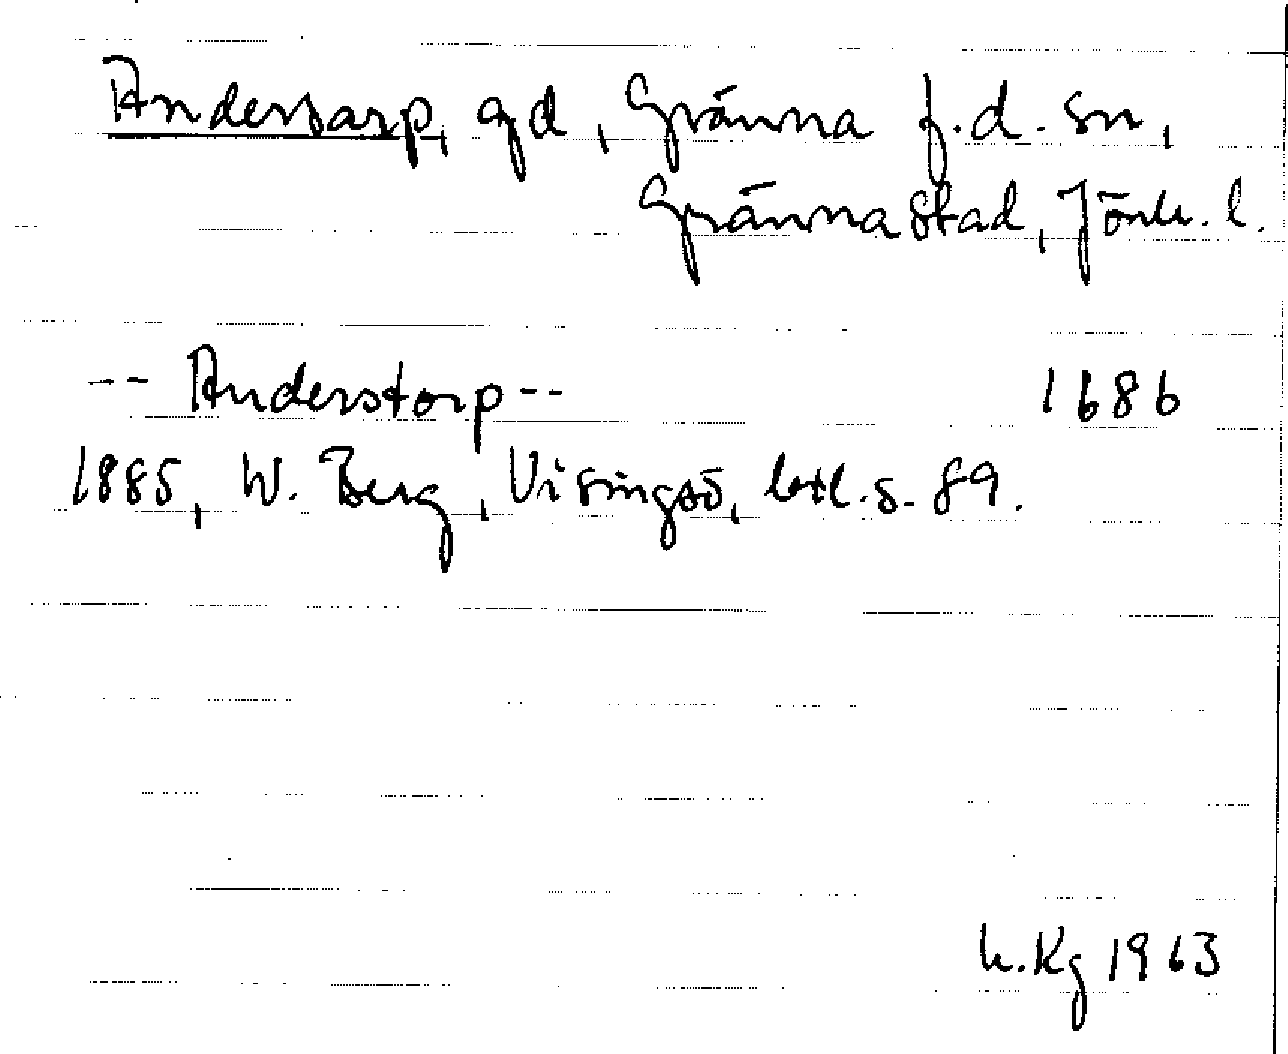 Andersarp, gd, Gränna f.d. sn,
Gränna stad, Jönk. l.
-- Anderstorp -- 1686
1885, W. Berg, Visingsö, bil. s. 89.
h. Kg 1963